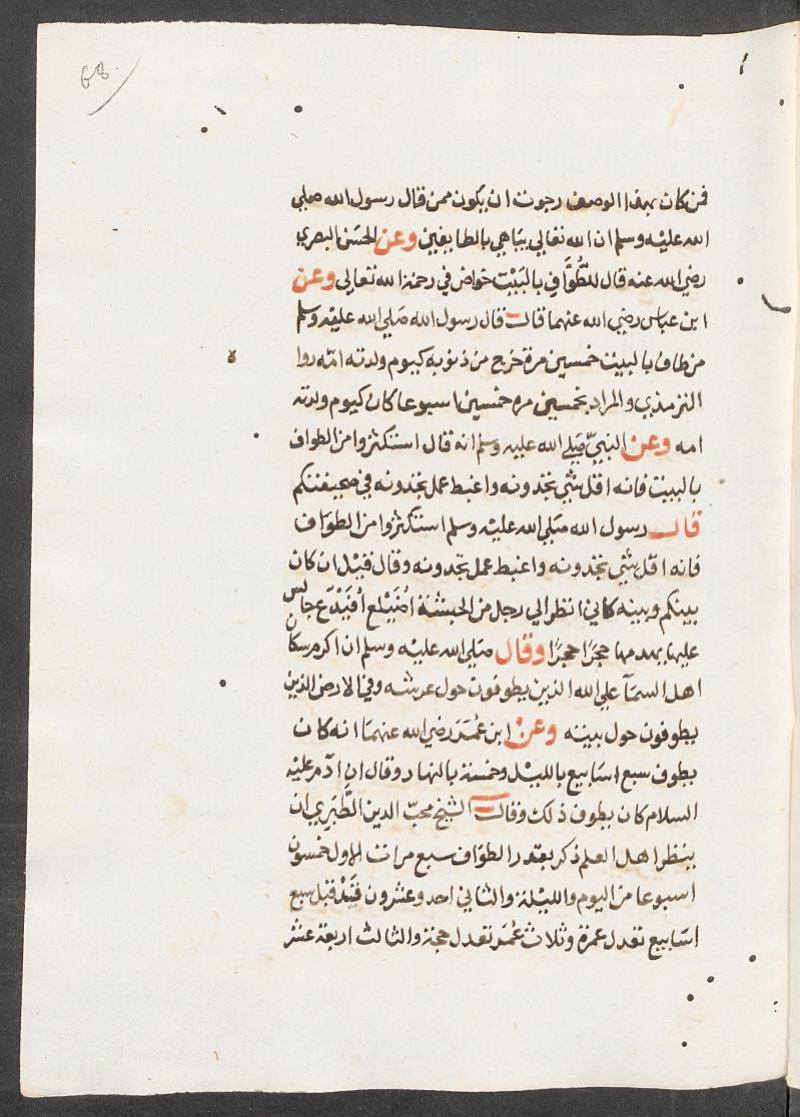 68
فمن كان بهذا الوصف رجوت ان يكون ممن قال رسول الله صلي
الله عليه وسلم ان الله تعالي يباهي بالطايفين وعن الحسن البصري
رضي الله عنه قال للطُّوَّافِ بالبَيْت خواض في رحمة الله تعالى وعن
ابن عباس رضي الله عنهما قالــ قال رسول الله صَلي الله عليه وسلم
من طاف بالبيت خمسين مرة خرج من ذنوبه كيوم ولدته امّه روا
الترمذي والمراد بخمسين مره خمسين اسبوعا كان كيوم ولدته
امه وعن النبيّ صَلي الله عليه وسلم انه قال استكثروا من الطواف
بالبيت فانه اقل شي تجدونه واغبط عمل تجدونه في صحيفتكم
قالــ رسول الله صَلي الله عليه وسلم استكثروا من الطوَاف
فانه اقل شي تجدونه واغبط عمل تجدونه وقال قبْل ان كان
بينكم وبينه كاني انظر الي رجل من الحبشة اُصَيْلع اُفَيْدَع جالس
عليها يهدمها حجرًا حجرًا وقال صَلي الله عليه وسلم ان اكرم سكان
اهل السمآ علي الله الذين يطوفون حول عرشه وفي الارض الذين
يطوفون حول بيته وعن ابن عُمَرَ رضي الله عنهمَا انه كان
يطوف سبع اسَابيع بالليْل وخمسة بالنهار وقال ان ادَم عليه
السلام كان يطوف ذلك وقالــ الشيخ محبّ الدين الطَّبَرِي ان
بعض اهل العلم ذكر بقدر الطوَاف سبع مرات الاول خمسون
اسبوعا من اليوم والليْلة والثاني احد وعشرون فَقَدْ قيل سبع
اسَابيع تعدل عمرة وثلاث عُمَر تعدل حجة والثالث اربعة عشر